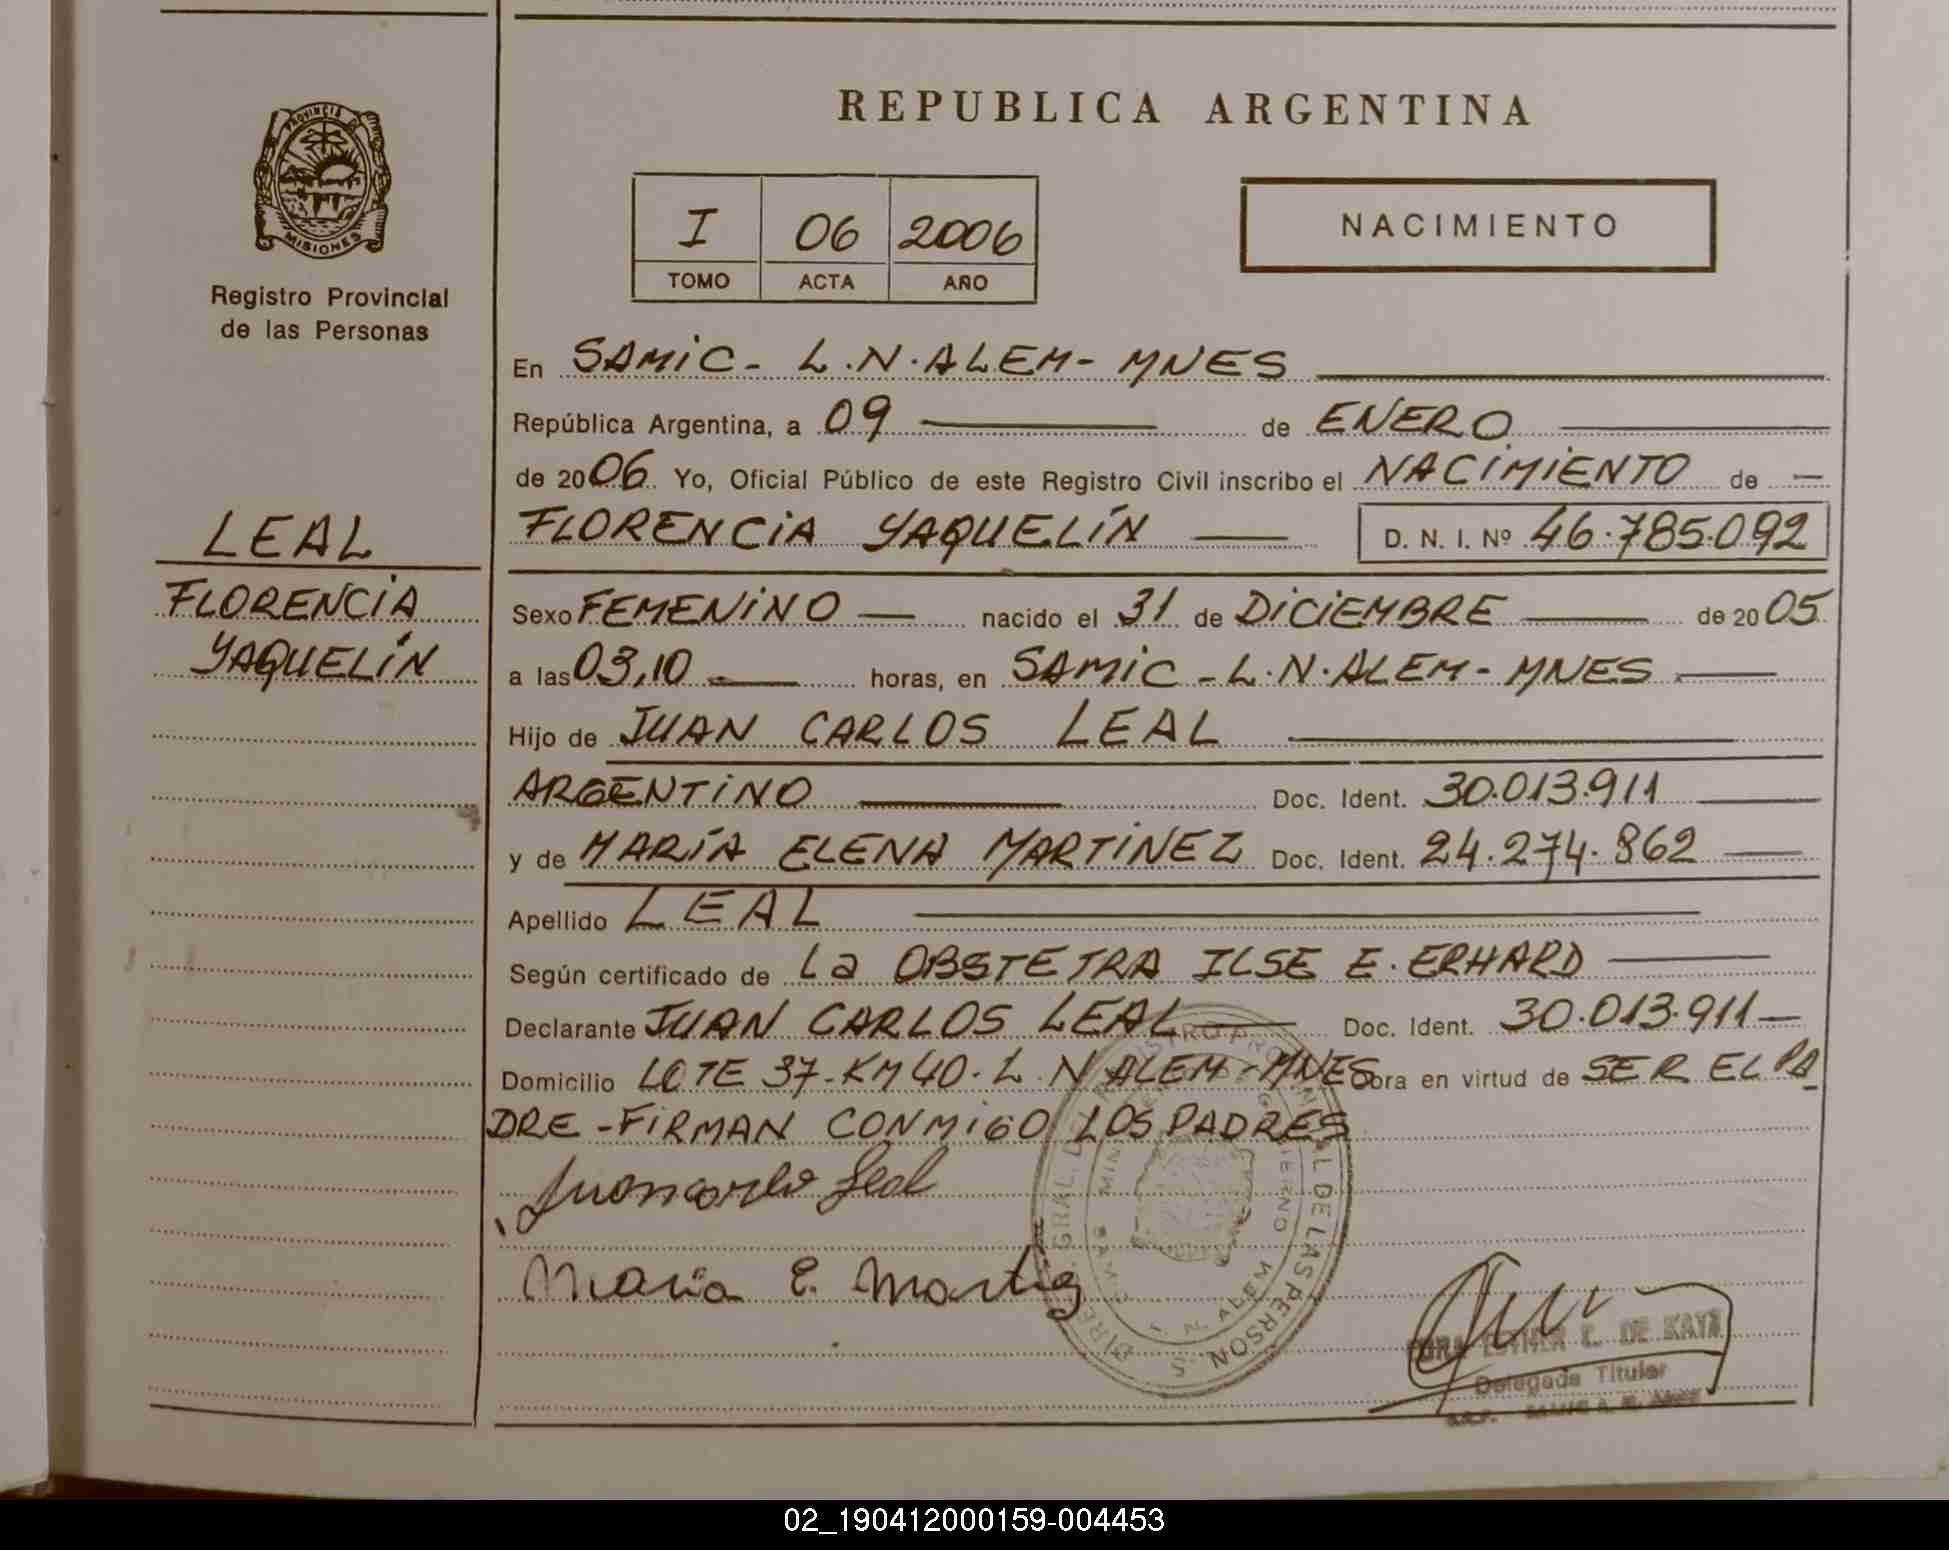 REPUBLICA ARGENTINA
PROVINCIA DE
MISIONES
Registro Provincial
de las Personas
I 06 2006
TOMO ACTA AÑO
NACIMIENTO
En SAMIC - L.N. ALEM - MNES
República Argentina, a 09 de ENERO
de 2006 Yo, Oficial Público de este Registro Civil inscribo el NACIMIENTO de
FLORENCIA YAQUELÍN D. N. I. Nº 46.785.092
LEAL
FLORENCIA
YAQUELÍN
Sexo FEMENINO nacido el 31 de DICIEMBRE de 2005
a las 03,10 horas, en SAMIC - L.N. ALEM - MNES
Hijo de JUAN CARLOS LEAL
ARGENTINO Doc. Ident. 30.013.911
y de MARÍA ELENA MARTINEZ Doc. Ident. 24.274.862
Apellido LEAL
Según certificado de La OBSTETRA ILSE E. ERHARD
Declarante JUAN CARLOS LEAL Doc. Ident. 30.013.911
Domicilio LOTE 37 - KM 40 - L. N ALEM - MNES Obra en virtud de SER EL PA
DRE - FIRMAN CONMIGO LOS PADRES
Juan carlo Leal
Maria E. Martinez
DE LAS PERSON
N. ALEM
C. DE KAYA
Delegada Titular
02_190412000159-004453